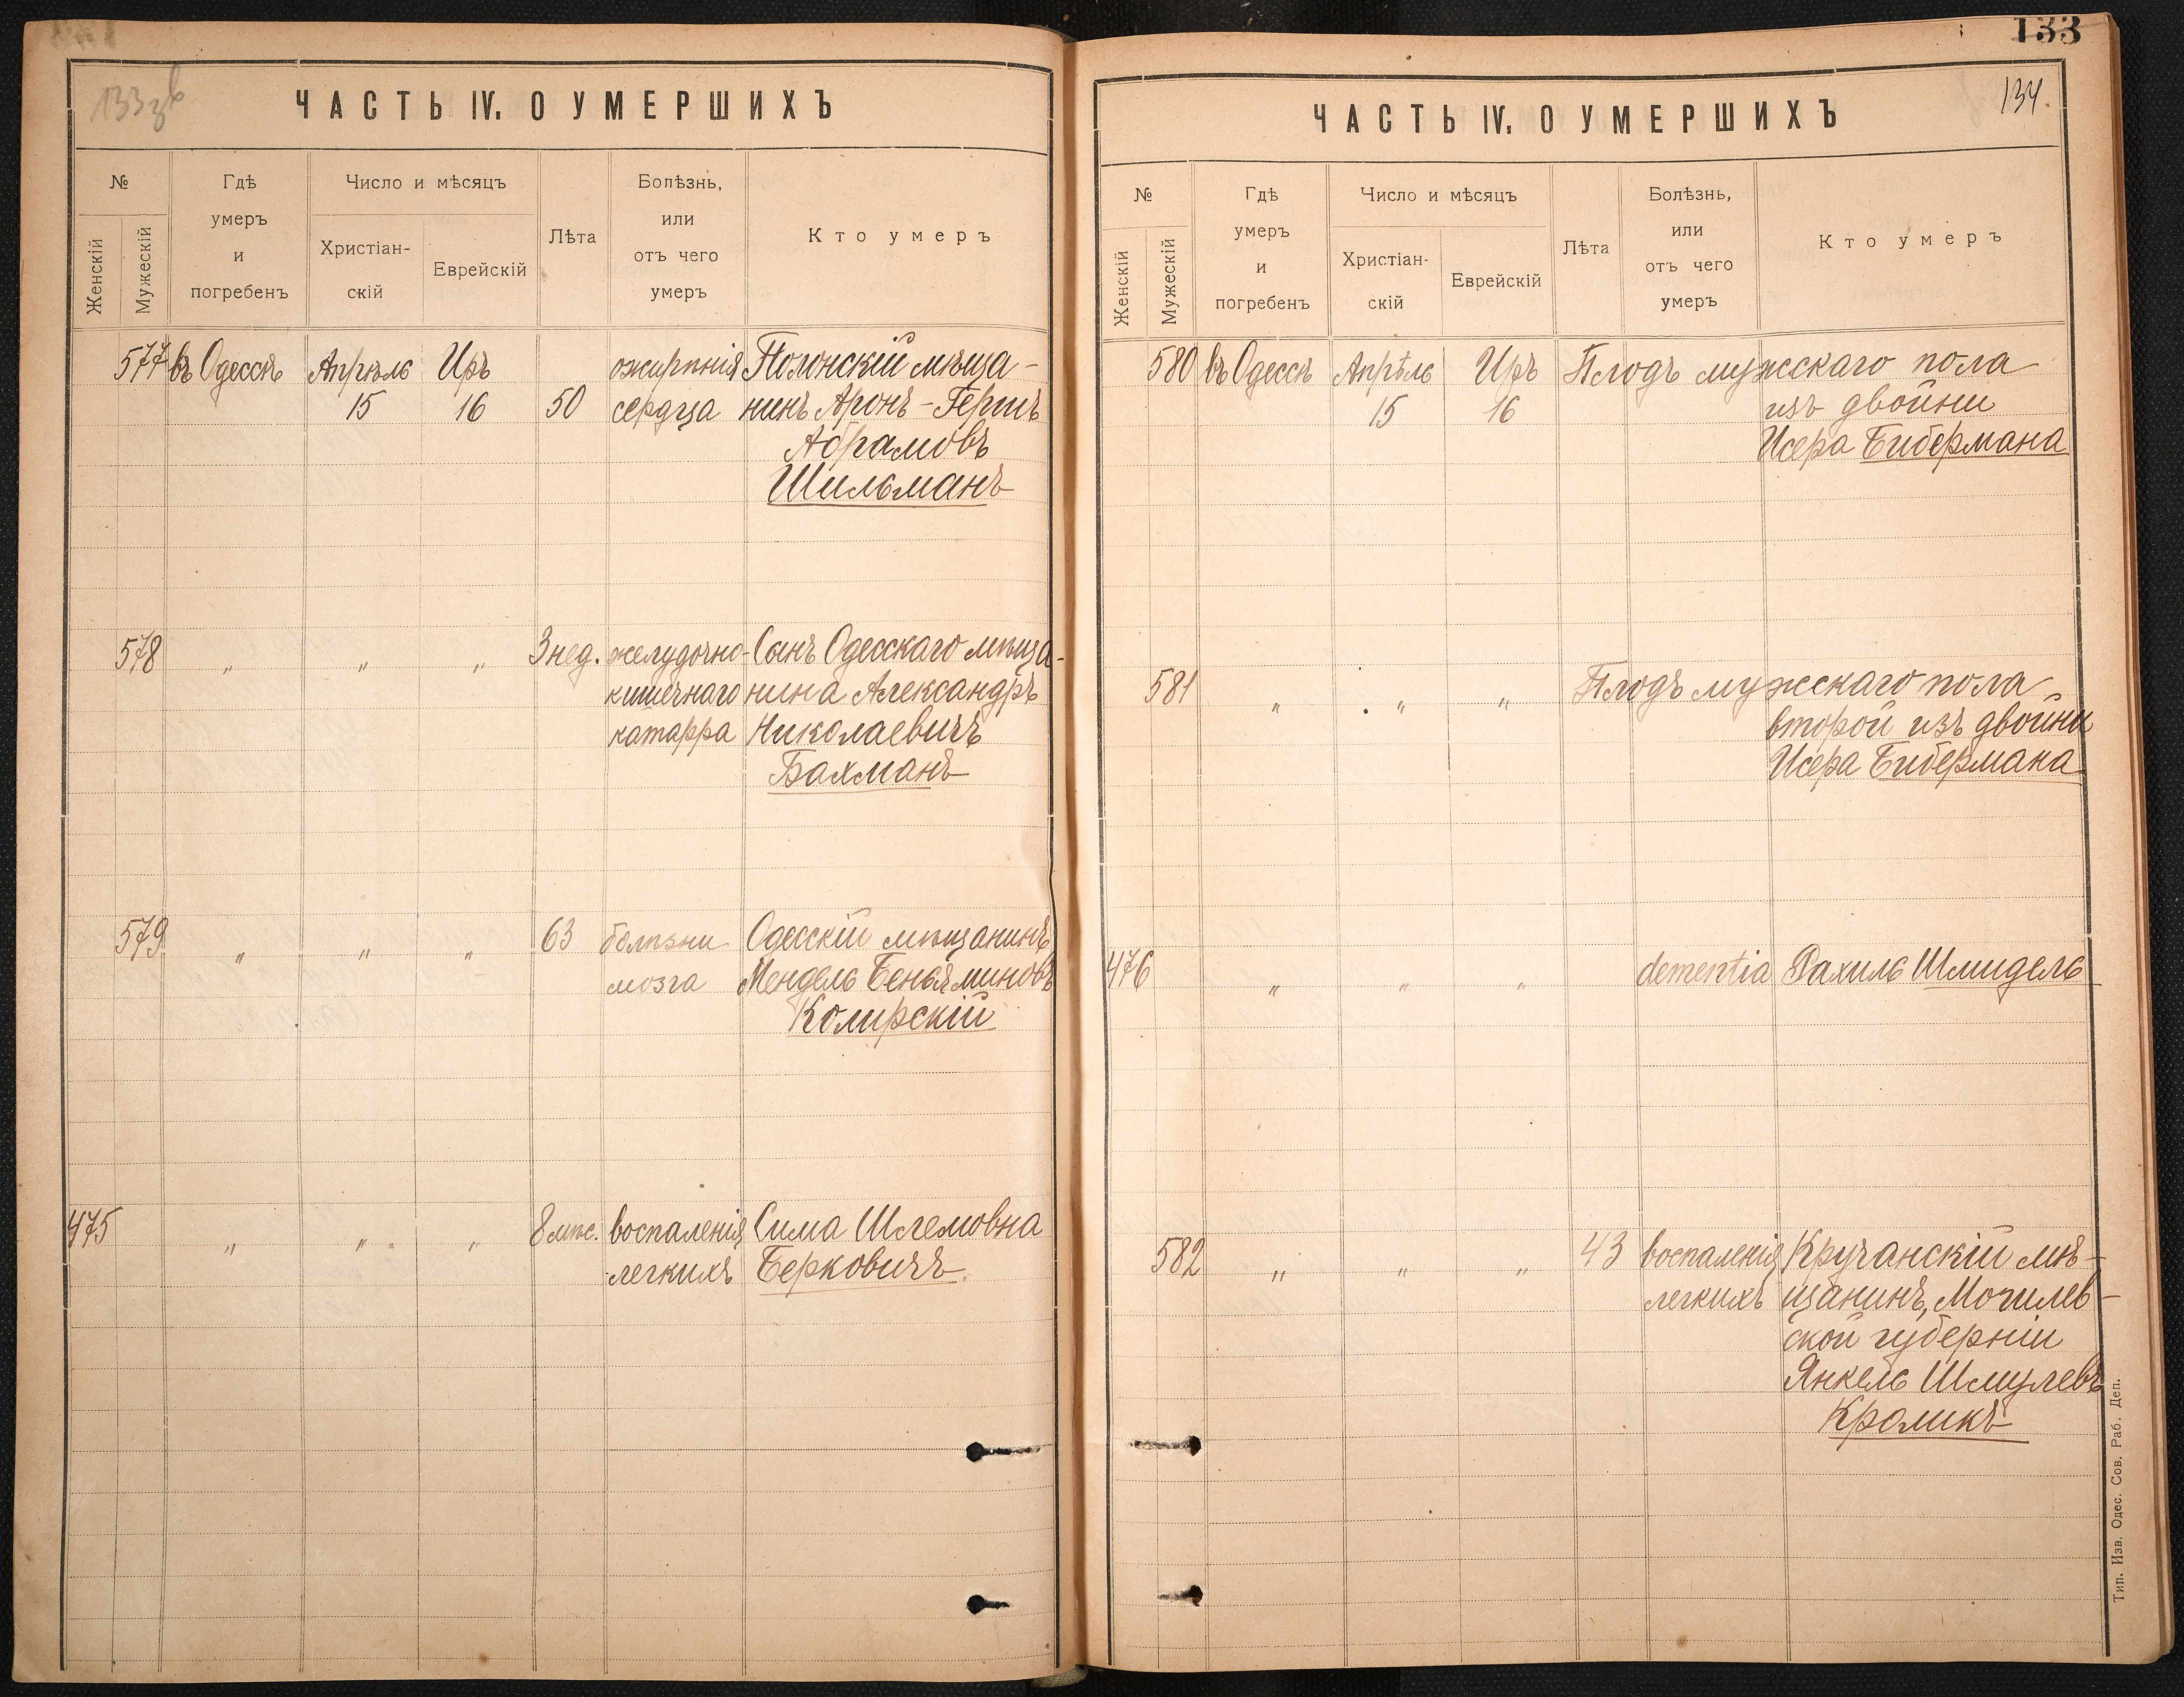 133 зв
ЧАСТЬ IV. О УМЕРШИХЪ
№
Женскій
Мужескій
Гдѣ
умеръ
и
погребенъ
Число и мѣсяцъ
Христіан-
скій
Еврейскій
Лѣта
Болѣзнь,
или
отъ чего
умеръ
Кто умеръ
577 въ Одессѣ Апрѣль Иръ ожирѣнія Полонскій мѣща-
15 16 50 сердца нинъ Аронъ-Гершъ
Абрамовъ
Шильманъ
578 " " " 3 нед. желудочно- Сынъ Одесскаго мѣща-
кишечнаго нина Александръ
катарра Николаевичъ
Бахманъ
579 " " " 63 болѣзни Одесскій мѣщанинъ
мозга Мендель Беньяминовъ
Колирскій
475 " " " 8 мѣс. воспаленія Сима Шлемовна
легкихъ Берковичъ
133
134.
ЧАСТЬ IV. О УМЕРШИХЪ
№
Женскій
Мужескій
Гдѣ
умеръ
и
погребенъ
Число и мѣсяцъ
Христіан-
скій
Еврейскій
Лѣта
Болѣзнь,
или
отъ чего
умеръ
Кто умеръ
580 въ Одессѣ Апрѣль Иръ Плодъ мужескаго пола
15 16 изъ двойни
Исера Бибермана
581 " " " Плодъ мужескаго пола
второй изъ двойни
Исера Бибермана
476 " " " dementia Рахиль Шмидель
582 " " " 43 воспаленія Кручанскій мѣ-
легкихъ щанинъ, Могилев-
ской губерніи
Янкель Шмулевъ
Кроликъ
Тип. Изв. Одес. Сов. Раб. Деп.